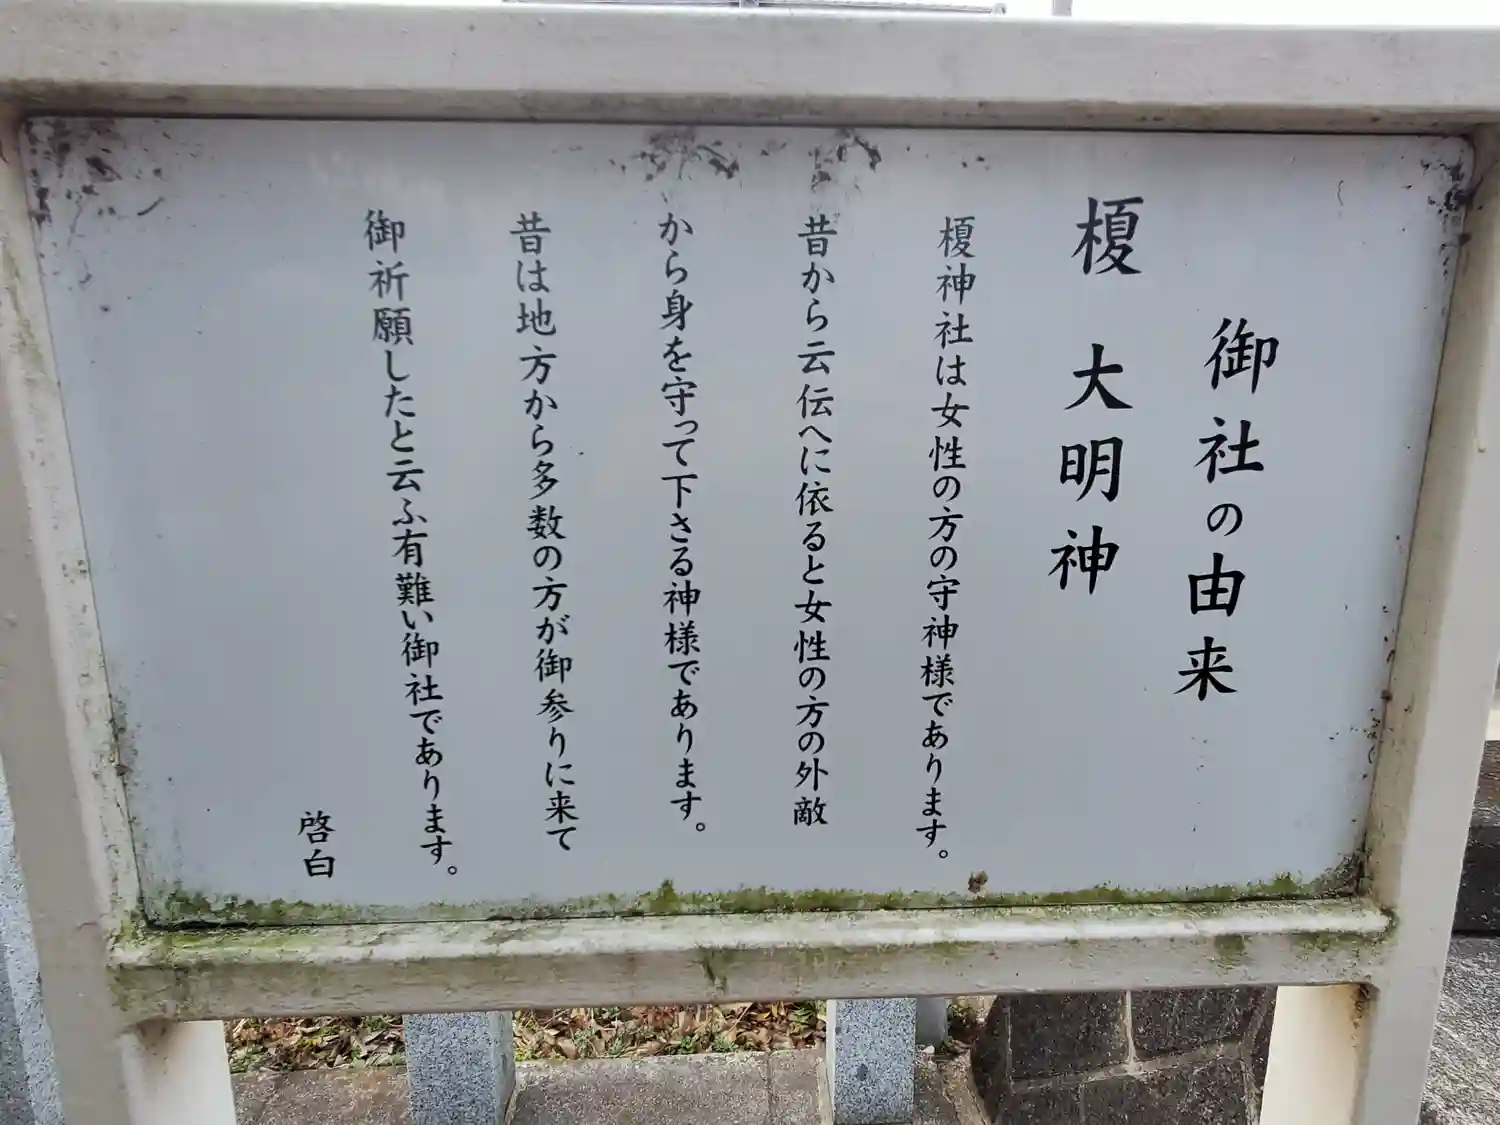 御社の由来
榎大明神
榎神社は女性の方の守神様であります。
昔から云伝へに依ると女性の方の外敵
から身を守って下さる神様であります。
昔は地方から多数の方が御参りに来て
御祈願したと云ふ有難い御社であります。
啓白